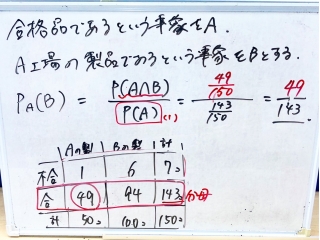 合格品であるという事象をA.
A工場の製品であるという事象をBとする.
P_A(B) = P(A∩B)/P(A) (1) = (49/150)/(143/150) = 49/143
Aの製 Bの製 計
不合 1 6 7コ
合 49 94 143コ 分母
計 50コ 100コ 150コ